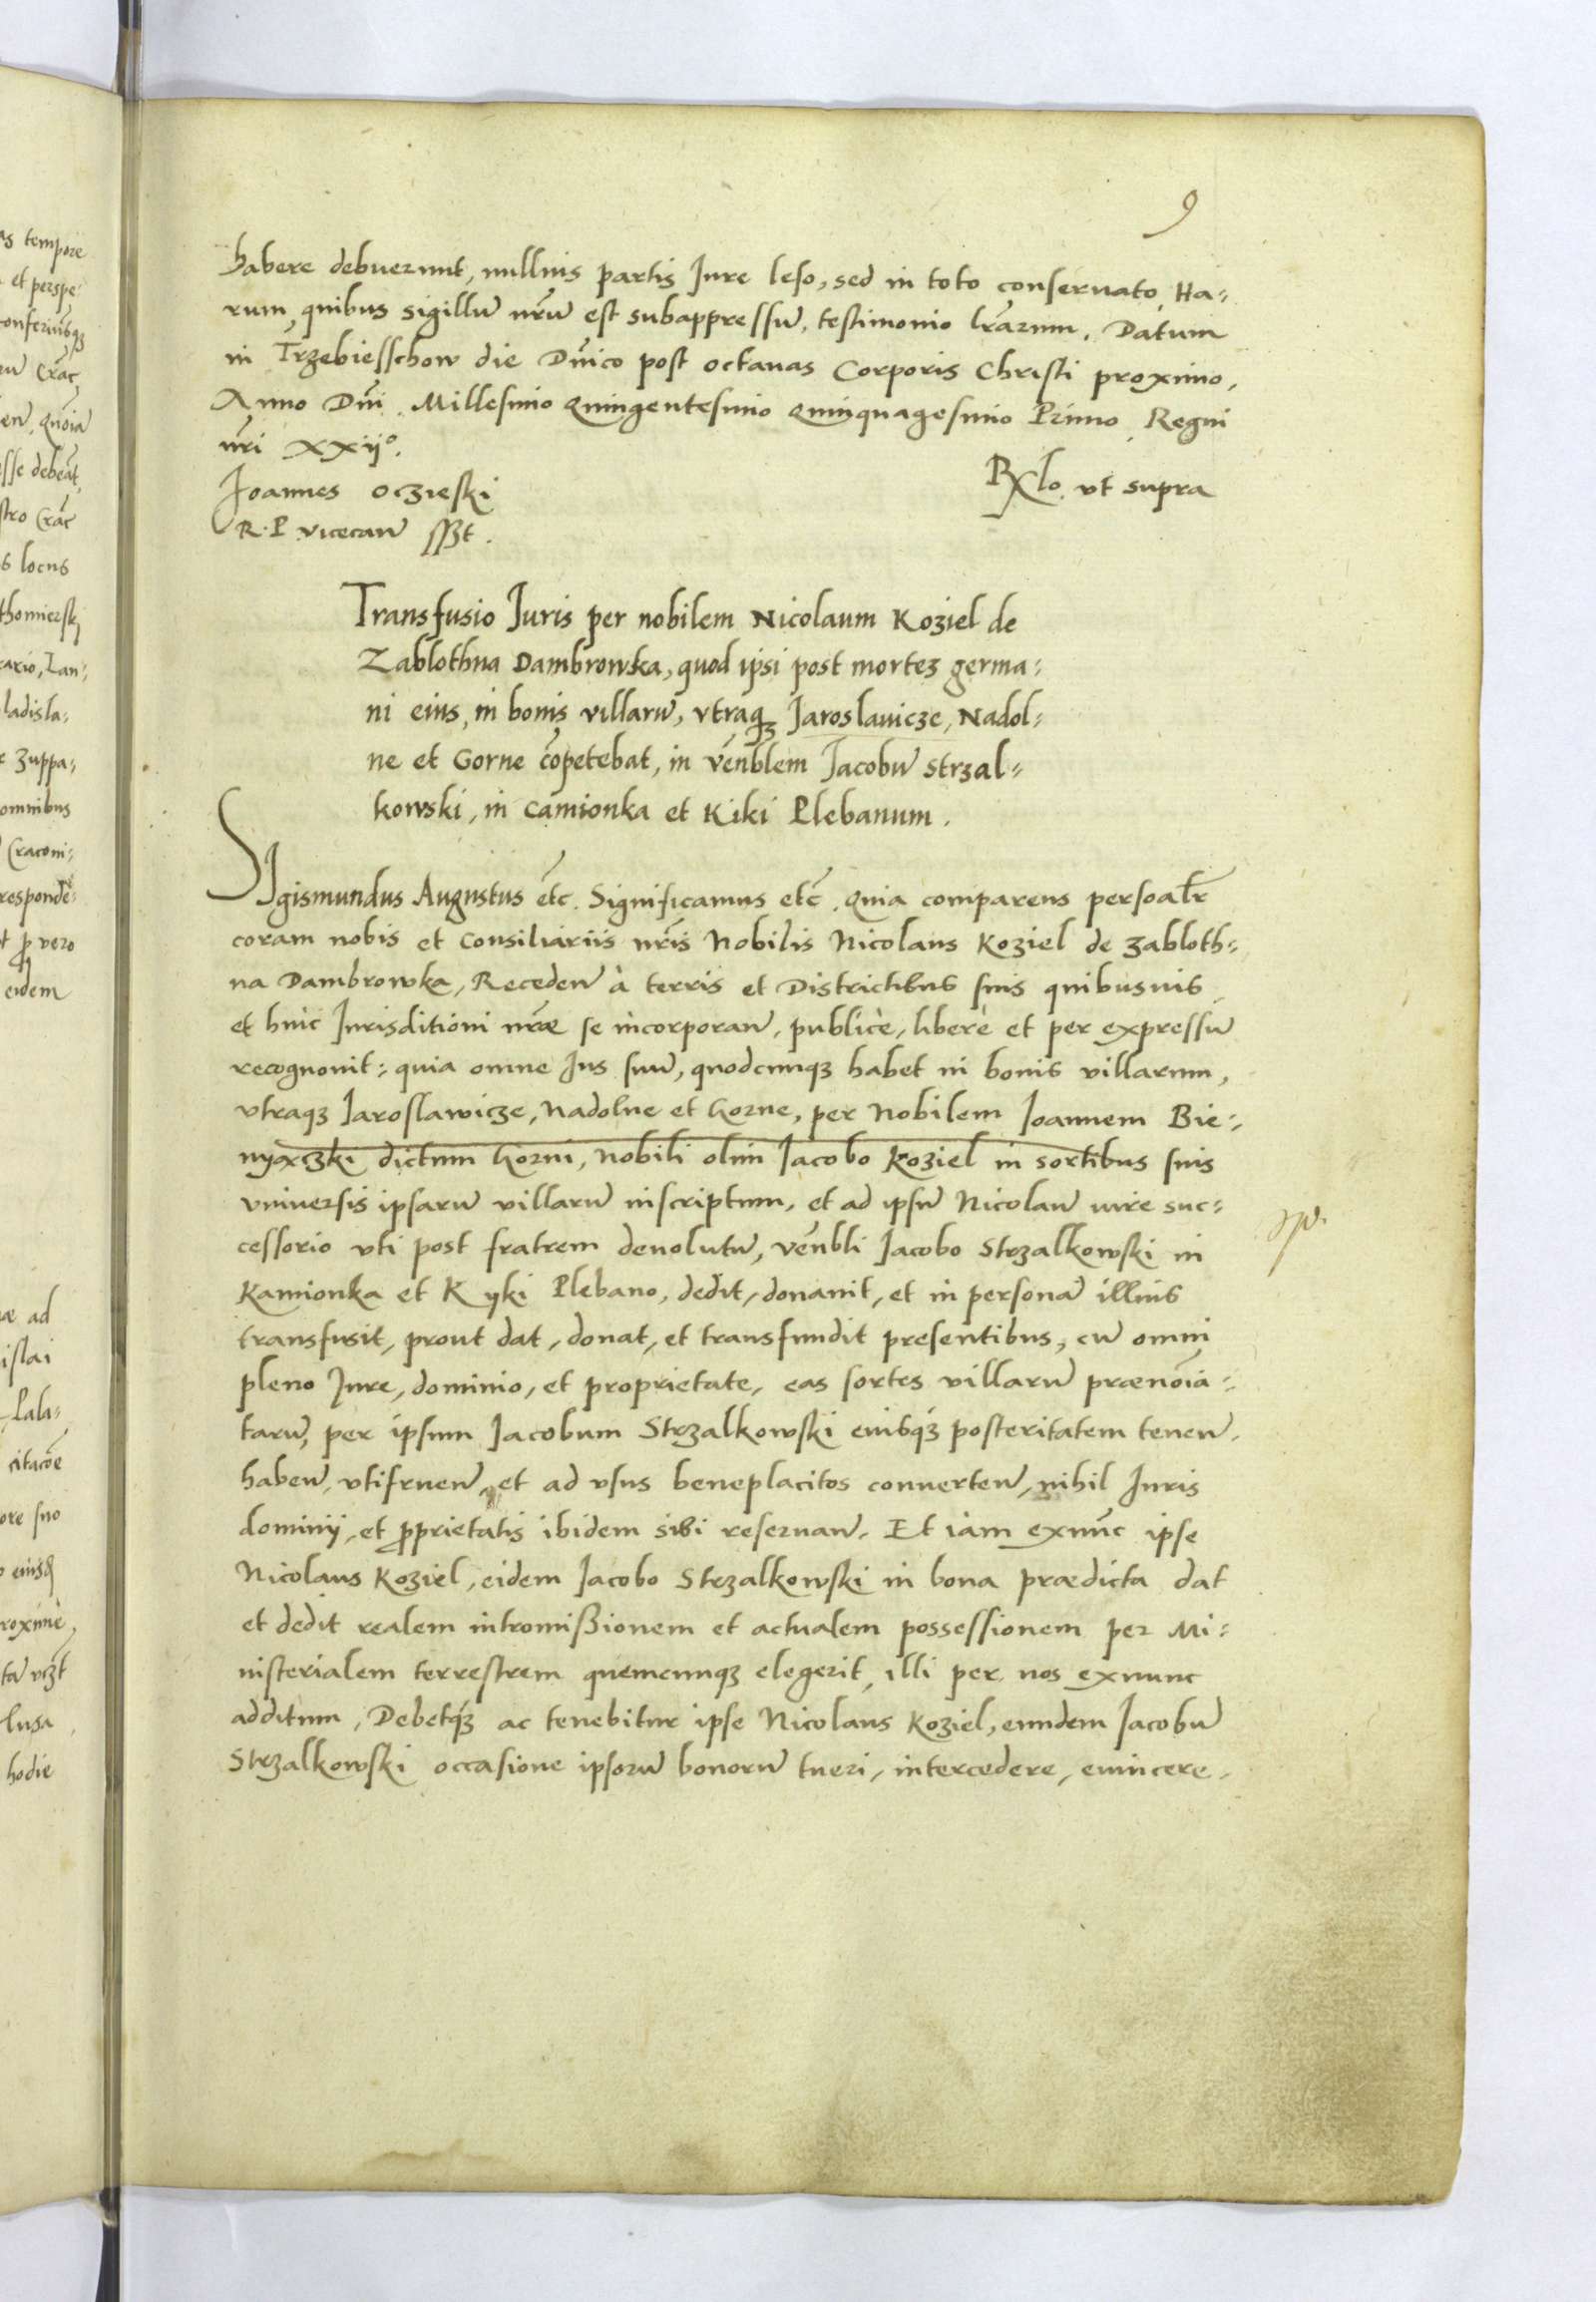 9
habere debuerunt, nullius partis Jure leso, sed in toto conseruato, Ha=
rum, quibus sigillū nr̄m est subappressū, testimonio lr̄arum. Datum
in Trzebiesschow die Dn̄ico post octauas Corporis Christi proximo,
Anno Dn̄i. Millesimo Quingentesimo Quinquagesimo Primo, Regni
nr̄i XXijº.
Joannes Oczieski
Rx̄lo ut supra
R. P. vicecan̄ sszt.
Transfusio Juris per nobilem Nicolaum Koziel de
Zablothna Dambrowka, quod ipsi post mortez germa=
ni eius, in bonis villarū, vtraqz Jaroslauicze, Nadol=
ne et Gorne cōpetebat, in vēnblem Jacobū Strzal=
kowski, in Camionka et Kiki Plebanum.
SIgismundus Augustus etc̄. Significamus etc̄. Quia comparens persoalr̄
coram nobis et Consiliariis nr̄is Nobilis Nicolaus Koziel de Zabloth=
na Dambrowka, Receden̄ à terris et Districtibus suis quibusuis
et huic Jurisditioni nr̄æ se incorporan̄, publicè, liberè et per expressū
recognouit: quia omne Jus suū, quodcunqz habet in bonis villarum,
vtraqz Jaroslawicze, Nadolne et Gorne, per Nobilem Joannem Bie=
nyaczki dictum Gorni, nobili olim Jacobo Koziel in sortibus suis
vniuersis ipsarū villarū inscriptum, et ad ipsū Nicolaū iure suc=
cessorio vti post fratrem deuolutū, vēnbli Jacobo Strzalkowski in
Kamionka et Kyki Plebano, dedit, donauit, et in personā illius
transfusit, prout dat, donat, et transfundit presentibus, cū omni
pleno Jure, dominio, et proprietate, eas sortes villarū prænōia=
tarū, per ipsum Jacobum Strzalkowski eiusqz posteritatem tenen̄.
haben̄, vtifruen̄, et ad vsus beneplacitos conuerten̄, nihil Juris
dominij, et p̄prietatis ibidem sibi reseruan̄. Et iam exnūc ipse
Nicolaus Koziel, eidem Jacobo Strzalkowski in bona prædicta dat
et dedit realem intromißionem et actualem possessionem per Mi=
nisterialem terrestrem quemcunqz elegerit, illi per nos exnunc
additum, Debetqz ac tenebitur ipse Nicolaus Koziel, eundem Jacobū
Strzalkowski occasione ipsorū bonorū tueri, intercedere, euincere,